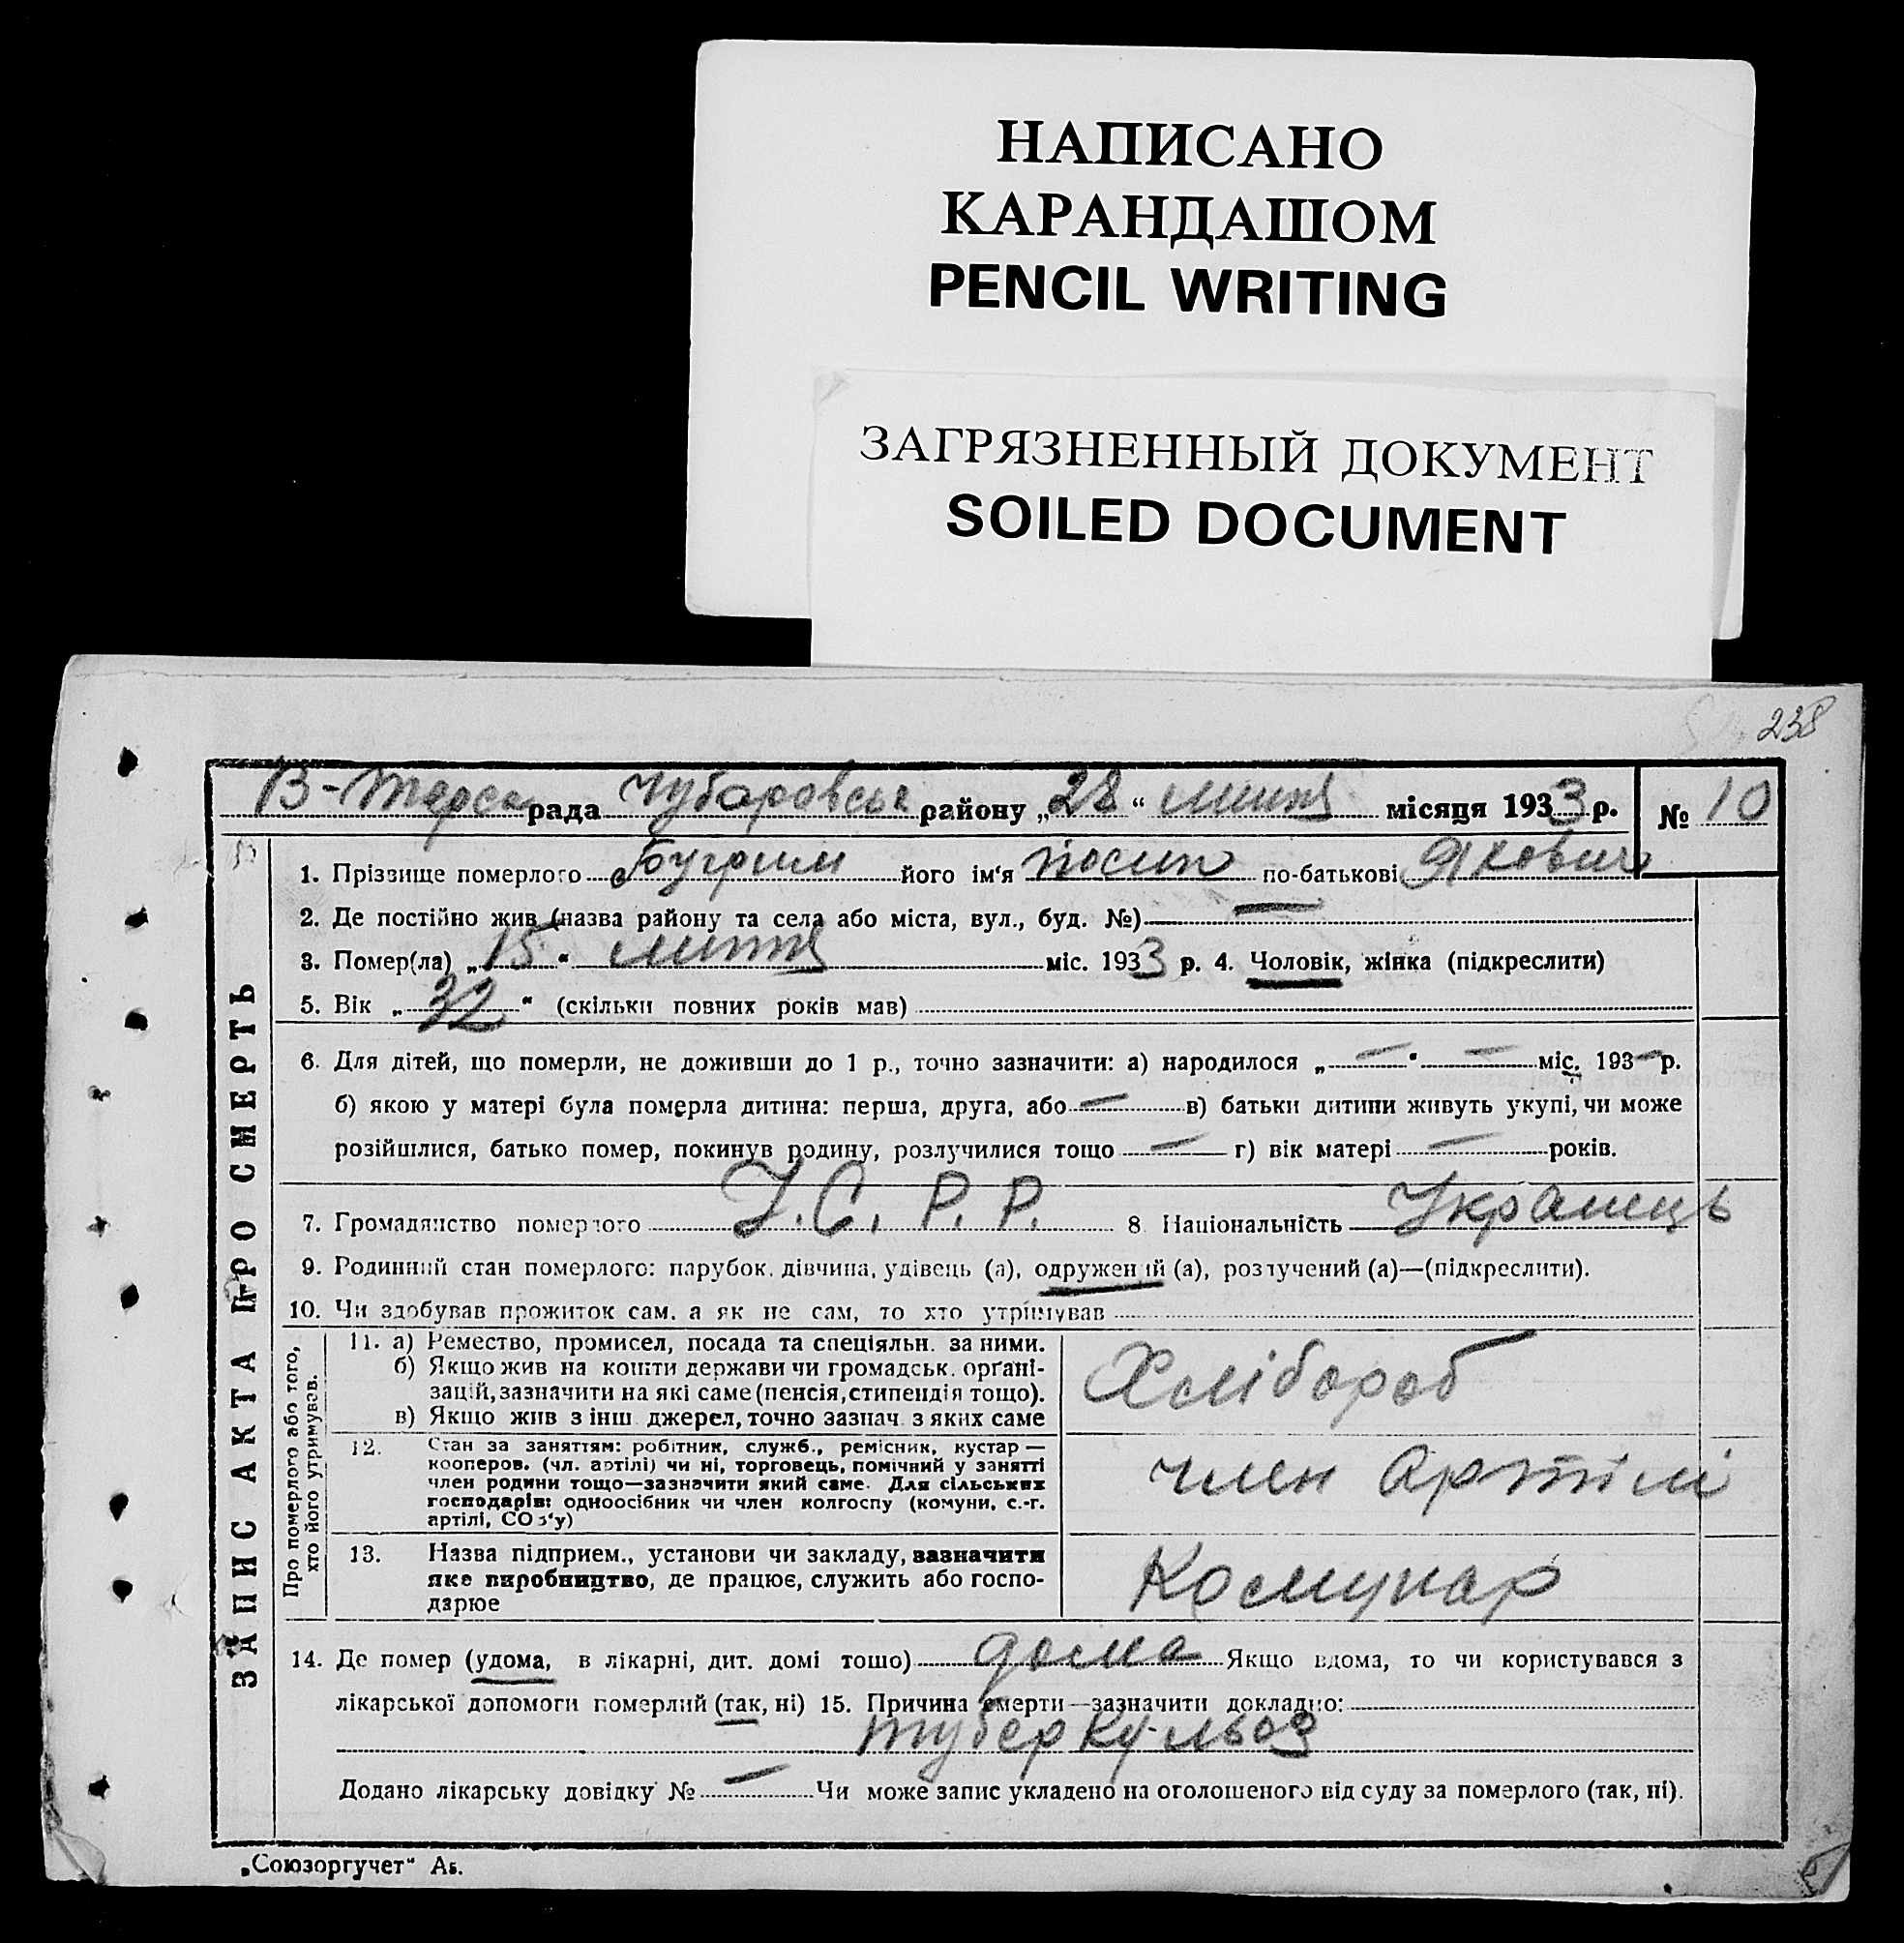 НАПИСАНО
КАРАНДАШОМ
PENCIL WRITING
ЗАГРЯЗНЕННЫЙ ДОКУМЕНТ
SOILED DOCUMENT
238
В-Терса рада Чубаровськ району „28“ липня місяця 1933 р. № 10
ЗАПИС АКТА ПРО СМЕРТЬ
1. Прізвище померлого Бугрим його ім'я Йосип по-батькові Якович
2. Де постійно жив (назва району та села або міста, вул., буд. №)
3. Помер(ла) „15“ липня міс. 1933 р. 4. Чоловік, жінка (підкреслити)
5. Вік „32“ (скільки повних років мав)
6. Для дітей, що померли, не доживши до 1 р., точно зазначити: а) народилося „—“ — міс. 193— р.
б) якою у матері була померла дитина: перша, друга, або — в) батьки дитини живуть укупі, чи може
розійшлися, батько помер, покинув родину, розлучилися тощо — г) вік матері — років.
7. Громадянство померлого У.С.Р.Р. 8. Національність Українець
9. Родинний стан померлого: парубок, дівчина, удівець (а), одружений (а), розлучений (а)—(підкреслити).
10. Чи здобував прожиток сам, а як не сам, то хто утримував
Про померлого або того,
хто його утримував.
11. а) Ремество, промисел, посада та спеціяльн. за ними.
б) Якщо жив на кошти держави чи громадськ. орґані-
зацій, зазначити на які саме (пенсія, стипендія тощо).
в) Якщо жив з інш джерел, точно зазнач. з яких саме
Хлібороб
12. Стан за заняттям: робітник, служб., ремісник, кустар —
кооперов. (чл. артілі) чи ні, торговець, помічний у занятті
член родини тощо—зазначити який саме. Для сільських
господарів: одноосібник чи член колгоспу (комуни, с.-г.
артілі, СОз'у)
член Артілі
13. Назва підприєм., установи чи закладу, зазначити
яке виробництво, де працює, служить або госпо-
дарює
Комунар
14. Де помер (удома, в лікарні, дит. домі тощо) дома Якщо вдома, то чи користувався з
лікарської допомоги померлий (так, ні) 15. Причина смерти—зазначити докладно:
туберкульоз
Додано лікарську довідку № — Чи може запис укладено на оголошеного від суду за померлого (так, ні).
„Союзоргучет“ А5.